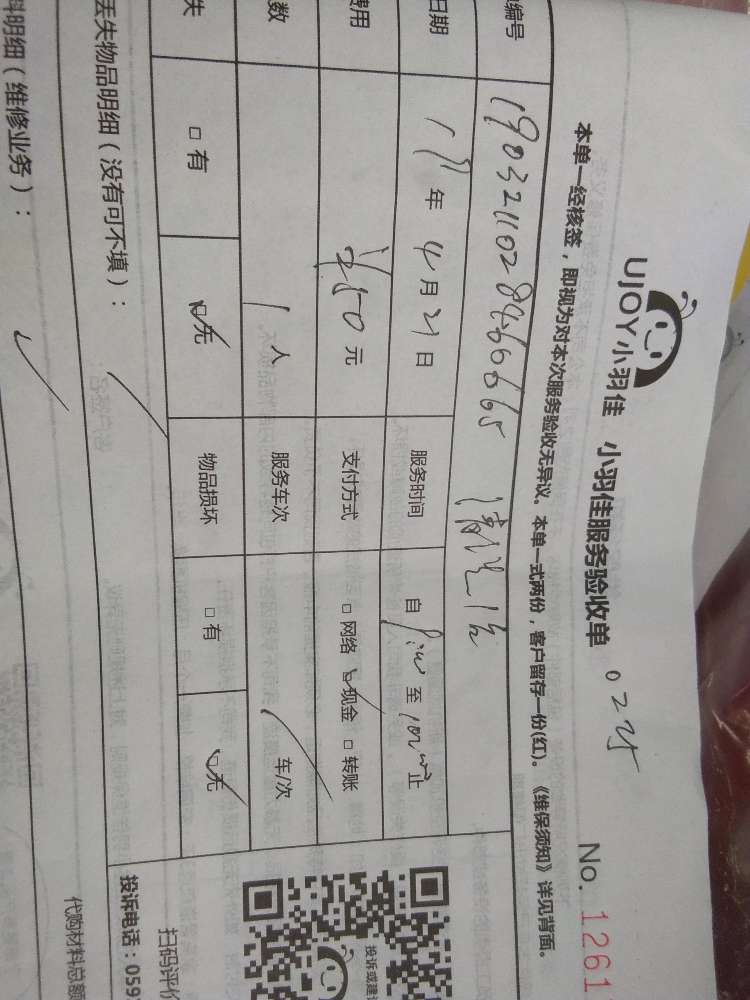 UJOY小羽佳 小羽佳服务验收单 025 No. 1261
本单一经核签，即视为对本次服务验收无异议。本单一式两份，客户留存一份(红)。《维保须知》详见背面。
编号
日期 年 4月21日 服务时间 自 至 止
费用 元 支付方式 □网络 □现金 □转账
数 1人 服务车次 车/次
失 □有 □无 物品损坏 □有 □无
丢失物品明细（没有可不填）：
料明细（维修业务）：
投诉或建议
扫码评价
投诉电话：059
代购材料总额